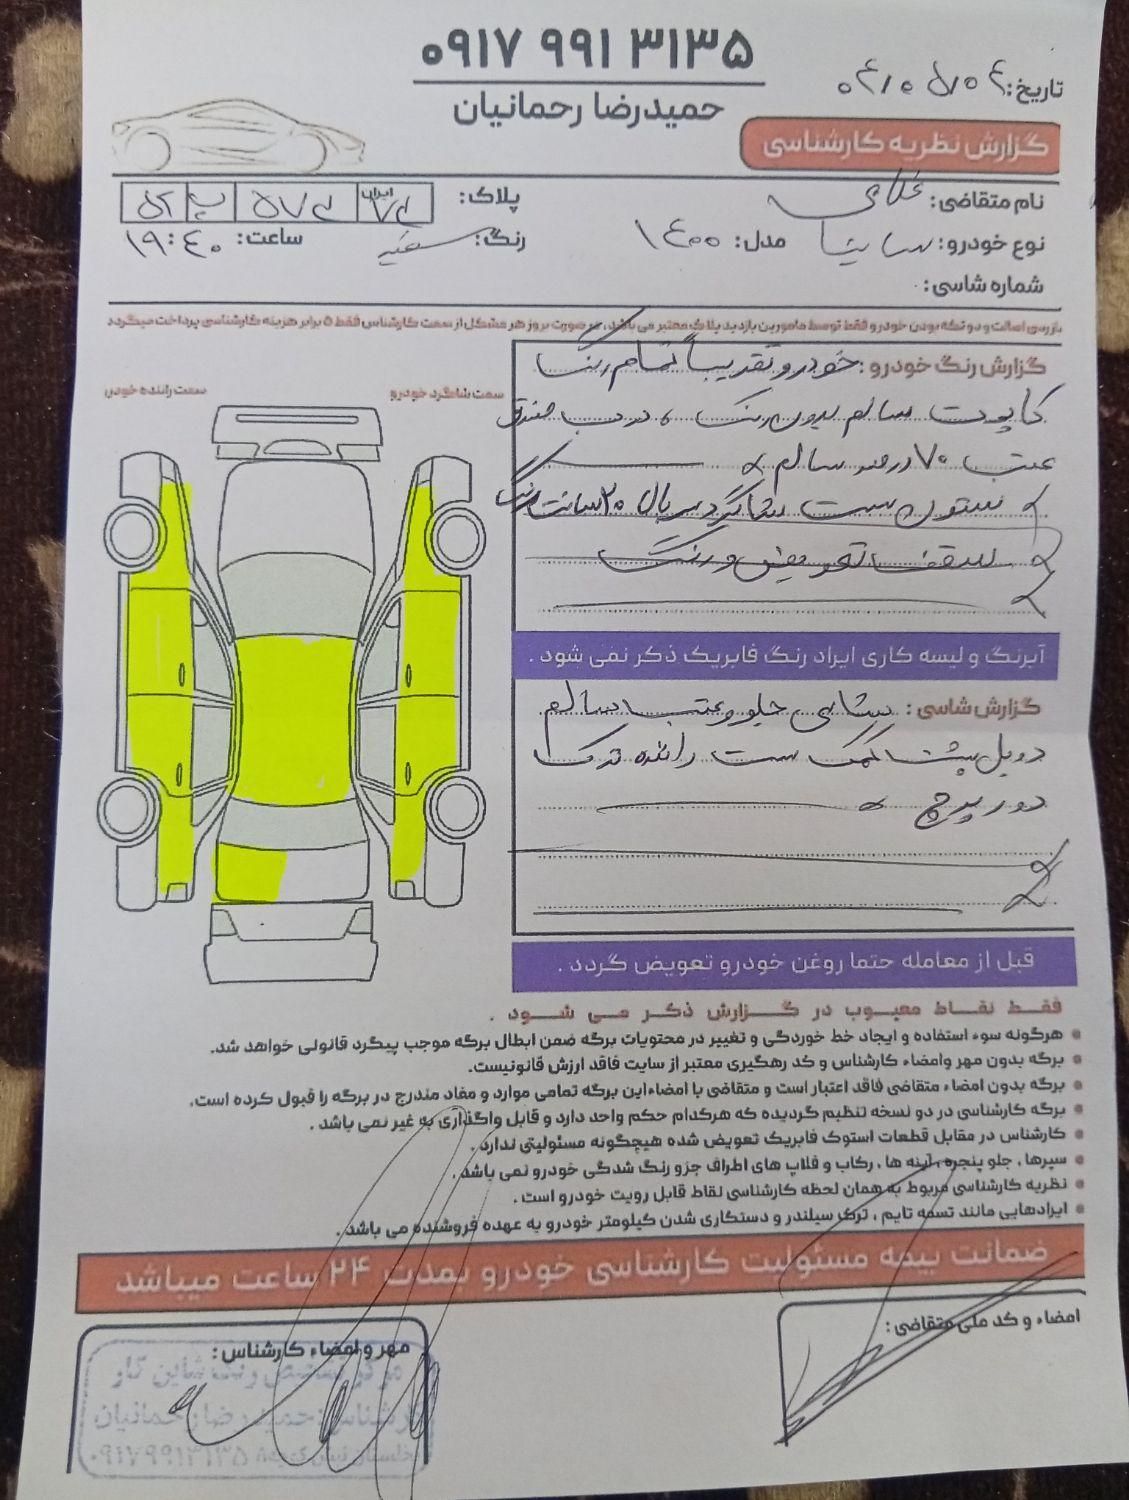 ۰۹۱۷ ۹۹۱ ۳۱۳۵
حمیدرضا رحمانیان
تاریخ: ۰۴/۰۵/۰۴
گزارش نظریه کارشناسی
نام متقاضی:
پلاک: ایران
نوع خودرو: ساینا مدل: ۱۴۰۰ رنگ: سفید ساعت: ۱۹:۴۰
شماره شاسی:
بازرسی اصالت و دو تکه بودن خودرو فقط توسط مامورین بازدید پلاک معتبر می باشد، در صورت بروز هر مشکل از سمت کارشناس فقط ۵ برابر هزینه کارشناسی پرداخت میگردد
سمت شاگرد خودرو
سمت راننده خودرو
گزارش رنگ خودرو: خودرو تقریباً تمام رنگ
کاپوت سالم بدون رنگ، درب صندوق
عقب ۷۰ درصد سالم
ستون سمت شاگرد ۲۰ سانت رنگ
سقف تعویض و رنگ
آبرنگ و لیسه کاری ایراد رنگ فابریک ذکر نمی شود.
گزارش شاسی: شاسی جلو و عقب سالم
دوبل پشت کمک سمت راننده ترک
دور پرچ
قبل از معامله حتما روغن خودرو تعویض گردد.
فقط نقاط معیوب در گزارش ذکر می شود.
هرگونه سوء استفاده و ایجاد خط خوردگی و تغییر در محتویات برگه ضمن ابطال برگه موجب پیگرد قانونی خواهد شد.
برگه بدون مهر وامضاء کارشناس و کد رهگیری معتبر از سایت فاقد ارزش قانونیست.
برگه بدون امضاء متقاضی فاقد اعتبار است و متقاضی با امضاءاین برگه تمامی موارد و مفاد مندرج در برگه را قبول کرده است.
برگه کارشناسی در دو نسخه تنظیم گردیده که هرکدام حکم واحد دارد و قابل واگذاری به غیر نمی باشد.
کارشناس در مقابل قطعات استوک فابریک تعویض شده هیچگونه مسئولیتی ندارد.
سپرها، جلو پنجره، آینه ها، رکاب و فلاپ های اطراف جزو رنگ شدگی خودرو نمی باشد.
نظریه کارشناسی مربوط به همان لحظه کارشناسی نقاط قابل رویت خودرو است.
ایرادهایی مانند تسمه تایم، ترک سیلندر و دستکاری شدن کیلومتر خودرو به عهده فروشنده می باشد.
ضمانت بیمه مسئولیت کارشناسی خودرو بمدت ۲۴ ساعت میباشد
امضاء و کد ملی متقاضی:
مهر و امضاء کارشناس:
کارشناس: حمیدرضا رحمانیان
۰۹۱۷۹۹۱۳۱۳۵